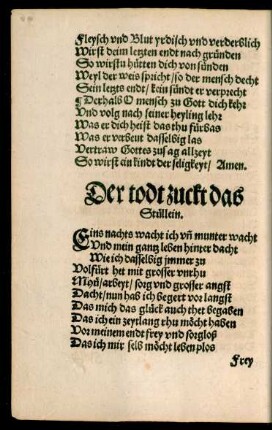 Fleysch vnd Blut yrdisch vnd verderblich
Wirst deim letzten endt nach gründen
So wirstu hütten dich von sünden
Weyl der weis spricht/so der mensch decht
Sein letzts endt/kein sündt er verprecht
¶Derhalb O mensch zu Gott dich kehr
Vnd volg nach seiner heyling lehr
Was er dich heist das thu fürbas
Was er verbeut dasselbig las
Vertraw Gottes zusag allzeyt
So wirst ein kindt der seligkeyt/ Amen.
Der todt zuckt das
Stüllein.
Eins nachts wacht ich vñ munter wacht
Vnd mein gantz leben hinder dacht
Wie ich dasselbig jmmer zu
Volfürt het mit grosser vnrhu
Mhü/arbeyt/sorg vnd grosser angst
Dacht/nun hab ich begert vor langst
Das mich das glück auch thet begaben
Das ich ein zeytlang rhu möcht haben
Vor meinem endt frey vnd sorgloß
Das ich mir selb möcht leben plos
Frey